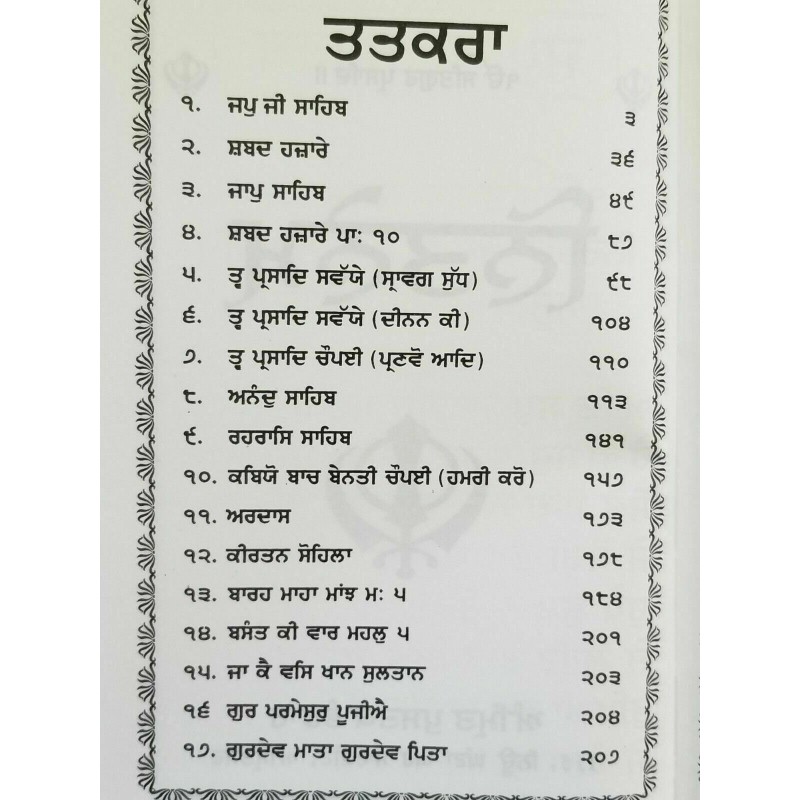 ਤਤਕਰਾ
੧. ਜਪੁ ਜੀ ਸਾਹਿਬ ੩
੨. ਸ਼ਬਦ ਹਜ਼ਾਰੇ ੩੬
੩. ਜਾਪੁ ਸਾਹਿਬ ੪੯
੪. ਸ਼ਬਦ ਹਜ਼ਾਰੇ ਪਾ: ੧੦ ੮੭
੫. ਤ੍ਵ ਪ੍ਰਸਾਦਿ ਸਵੱਯੇ (ਸ੍ਰਾਵਗ ਸੁੱਧ) ੯੮
੬. ਤ੍ਵ ਪ੍ਰਸਾਦਿ ਸਵੱਯੇ (ਦੀਨਨ ਕੀ) ੧੦੪
੭. ਤ੍ਵ ਪ੍ਰਸਾਦਿ ਚੌਪਈ (ਪ੍ਰਣਵੋ ਆਦਿ) ੧੧੦
੮. ਅਨੰਦੁ ਸਾਹਿਬ ੧੧੩
੯. ਰਹਰਾਸਿ ਸਾਹਿਬ ੧੪੧
੧੦. ਕਬਿਯੋ ਬਾਚ ਬੇਨਤੀ ਚੌਪਈ (ਹਮਰੀ ਕਰੋ) ੧੫੭
੧੧. ਅਰਦਾਸ ੧੭੩
੧੨. ਕੀਰਤਨ ਸੋਹਿਲਾ ੧੭੮
੧੩. ਬਾਰਹ ਮਾਹਾ ਮਾਂਝ ਮ: ੫ ੧੮੪
੧੪. ਬਸੰਤ ਕੀ ਵਾਰ ਮਹਲੁ ੫ ੨੦੧
੧੫. ਜਾ ਕੈ ਵਸਿ ਖਾਨ ਸੁਲਤਾਨ ੨੦੩
੧੬ ਗੁਰ ਪਰਮੇਸੁਰੁ ਪੂਜੀਐ ੨੦੪
੧੭. ਗੁਰਦੇਵ ਮਾਤਾ ਗੁਰਦੇਵ ਪਿਤਾ ੨੦੭